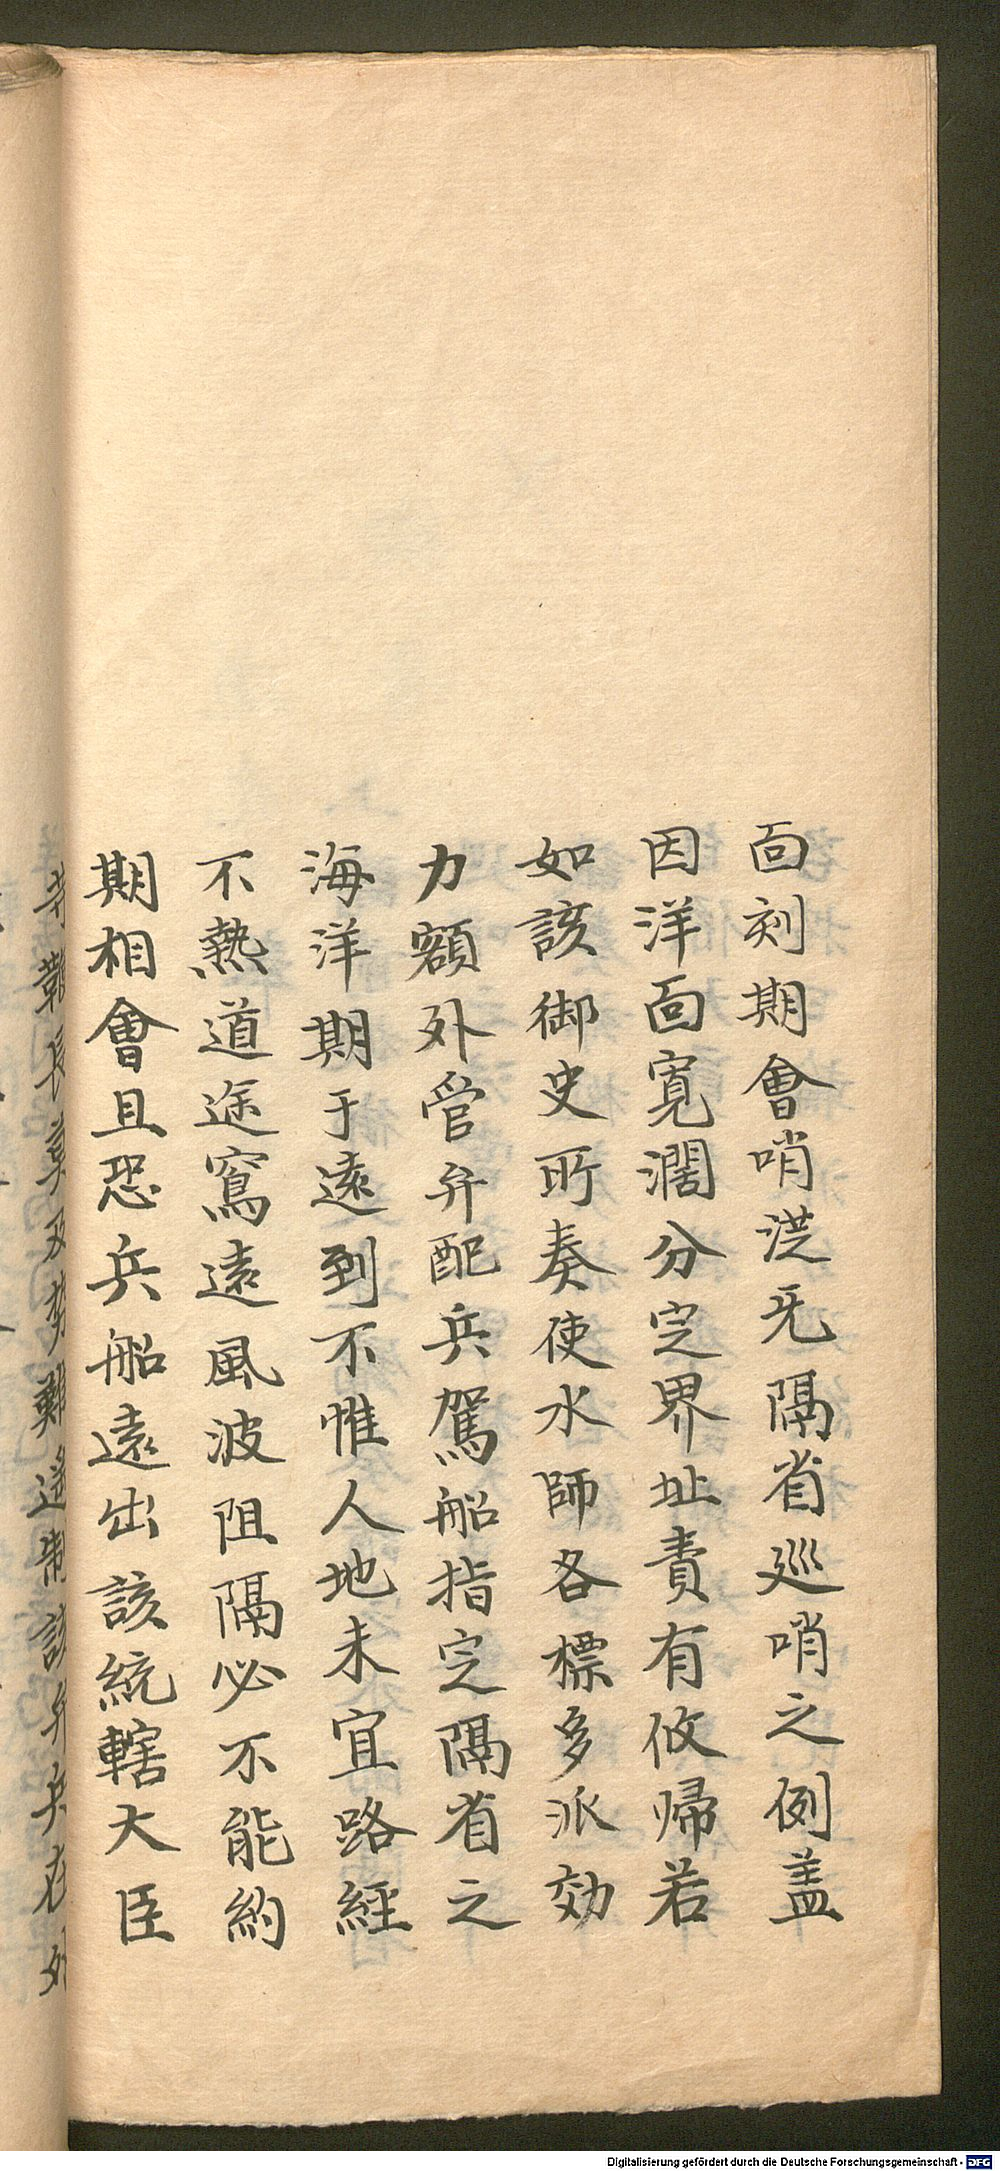 面刻期會哨从無隔省巡哨之例盖
因洋面寛濶分定界址責有攸帰若
如該御史所奏使水師各標多派効
力額外管弁配兵駕船指定隔省之
海洋期于遠到不惟人地未宜路經
不熱道途寫遠風波阻隔必不能約
期相會且恐兵船遠出該統轄大臣
鞭長莫及勢難遥制該弁兵在外
Digitalisierung gefördert durch die Deutsche Forschungsgemeinschaft - DFG